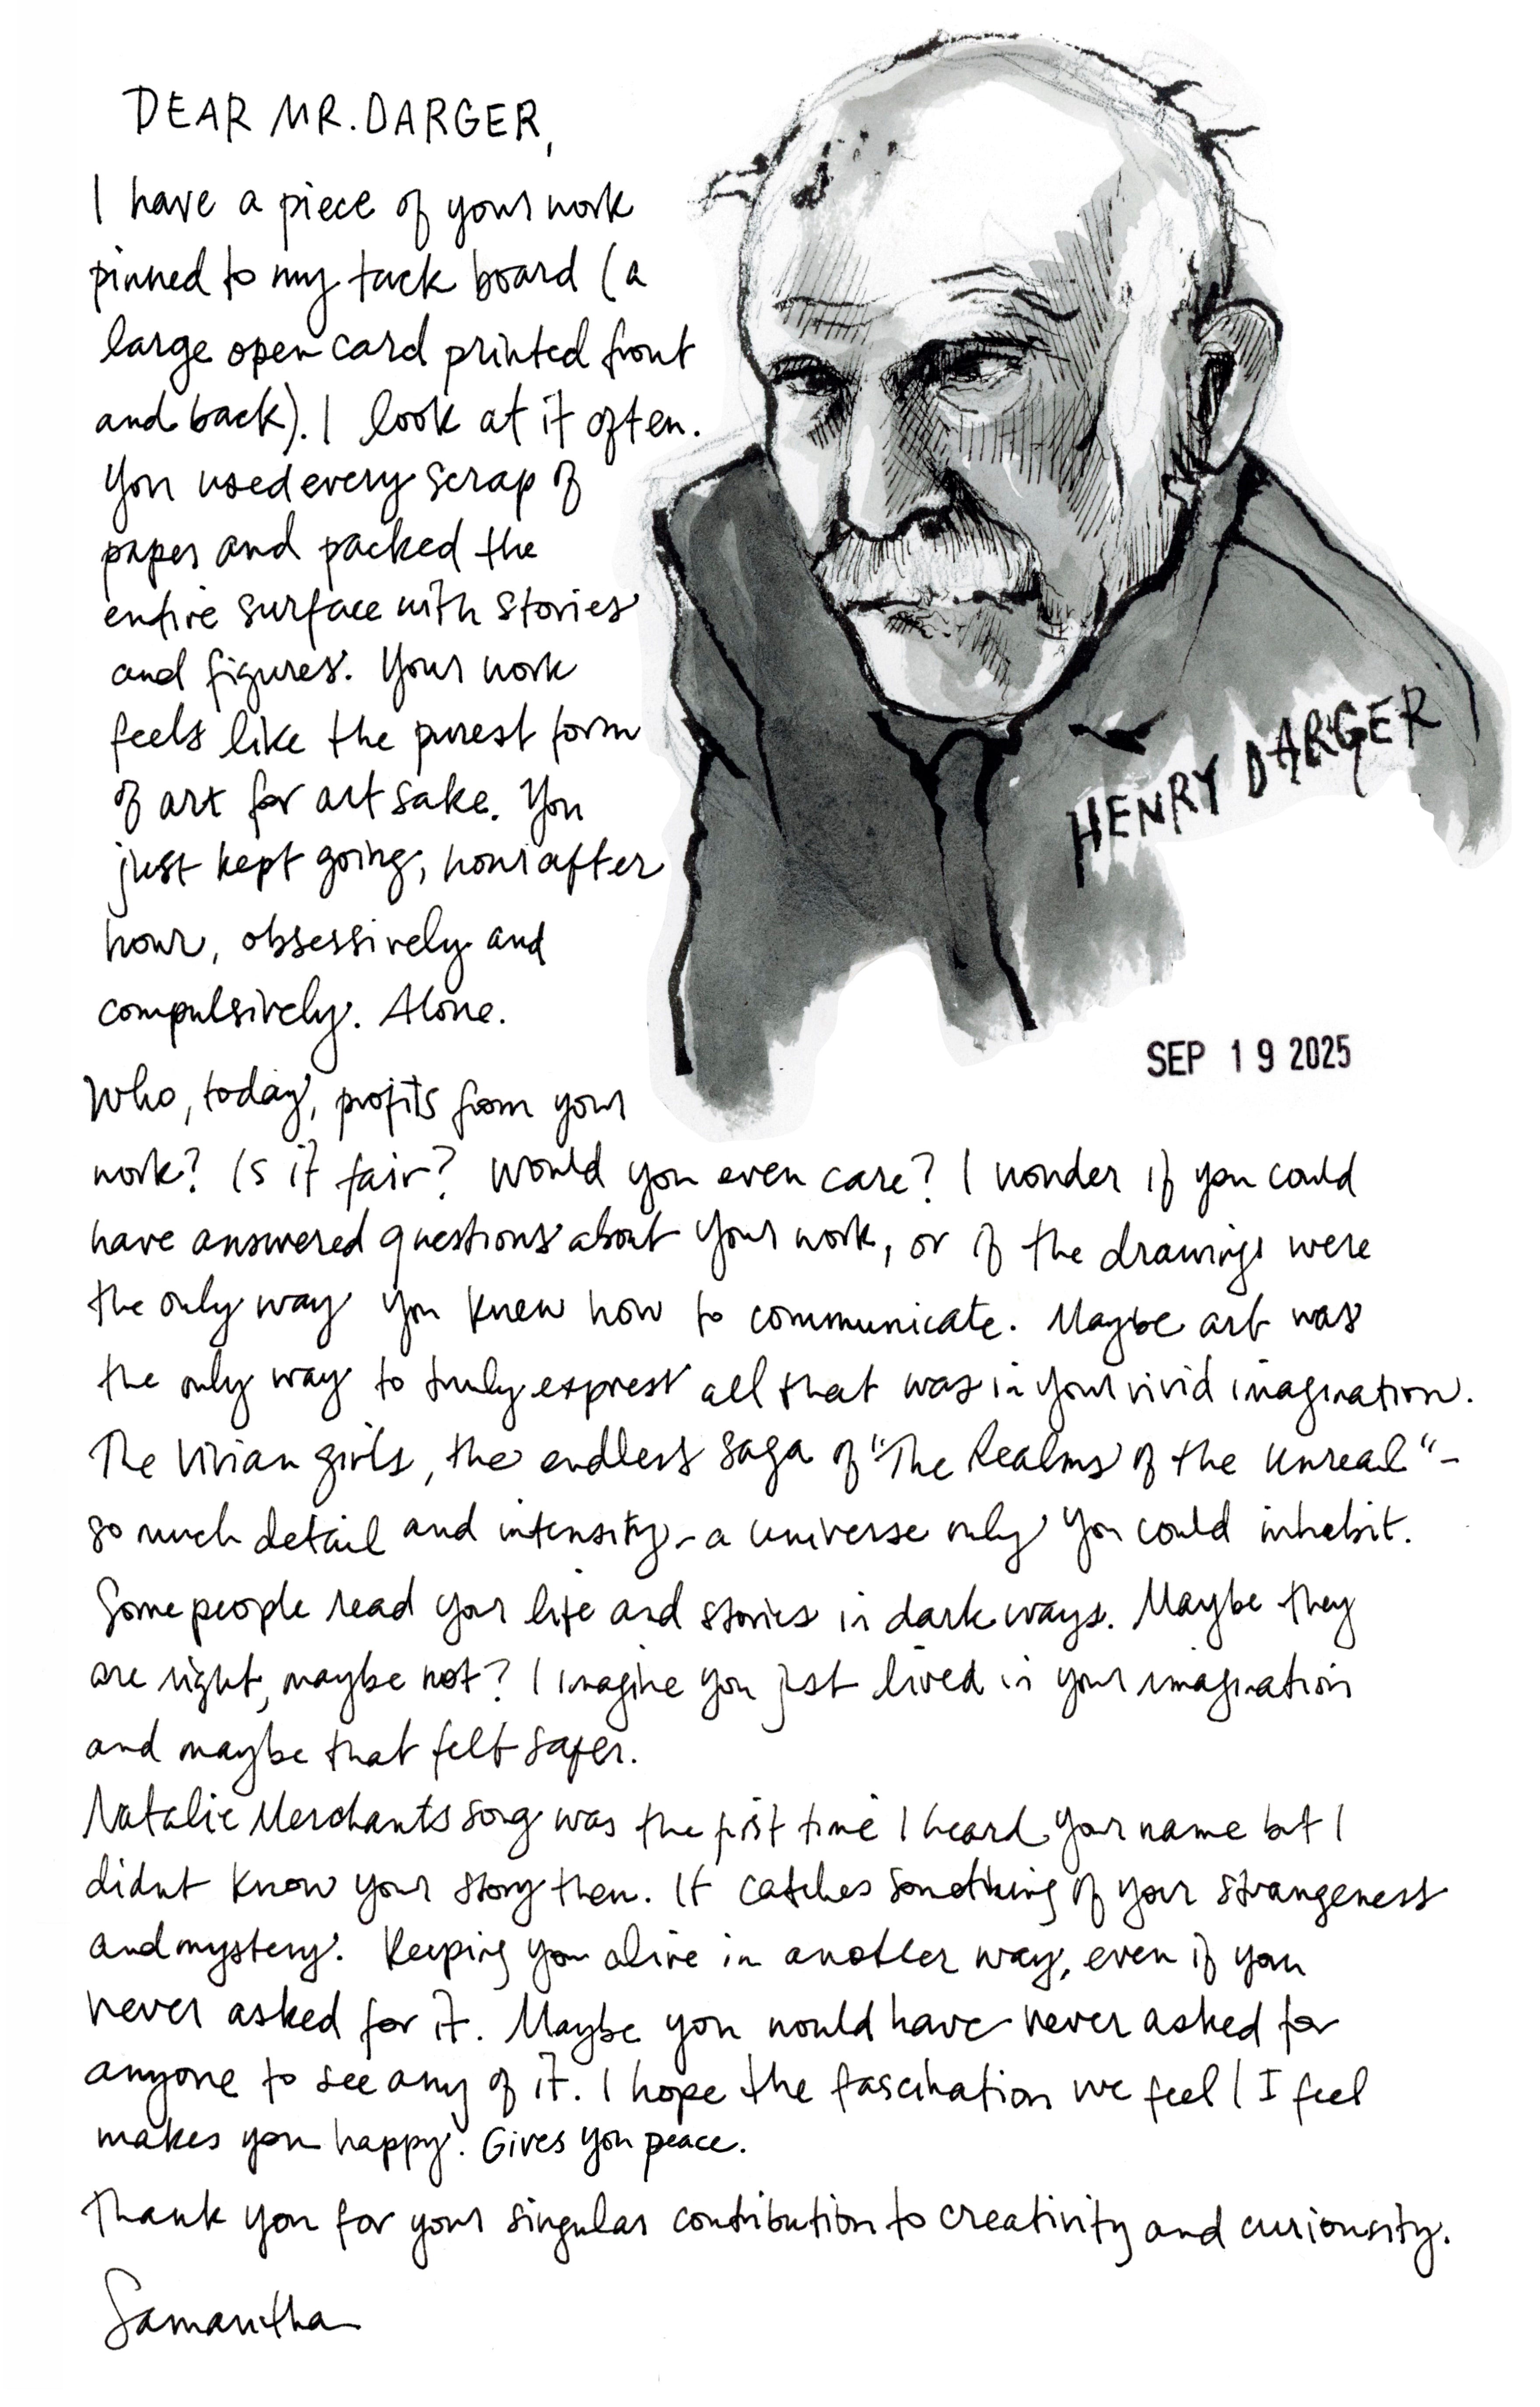 DEAR MR. DARGER,
I have a piece of your work
pinned to my tack board (a
large open card printed front
and back). I look at it often.
You used every scrap of
paper and packed the
entire surface with stories
and figures. Your work
feels like the purest form
of art for art sake. You
just kept going, hour after
hour, obsessively and
compulsively. Alone.
HENRY DARGER
SEP 19 2025
Who, today, profits from your
work? Is it fair? Would you even care? I wonder if you could
have answered questions about your work, or if the drawings were
the only way you knew how to communicate. Maybe art was
the only way to truly express all that was in your vivid imagination.
The Vivian girls, the endless saga of "The Realms of the Unreal" -
so much detail and intensity - a universe only you could inhabit.
Some people read your life and stories in dark ways. Maybe they
are right, maybe not? I imagine you just lived in your imagination
and maybe that felt safer.
Natalie Merchants song was the first time I heard your name but I
didnt know your story then. It catches something of your strangeness
and mystery. Keeping you alive in another way, even if you
never asked for it. Maybe you would have never asked for
anyone to see any of it. I hope the fascination we feel / I feel
makes you happy. Gives you peace.
Thank you for your singular contribution to creativity and curiousity.
Samantha